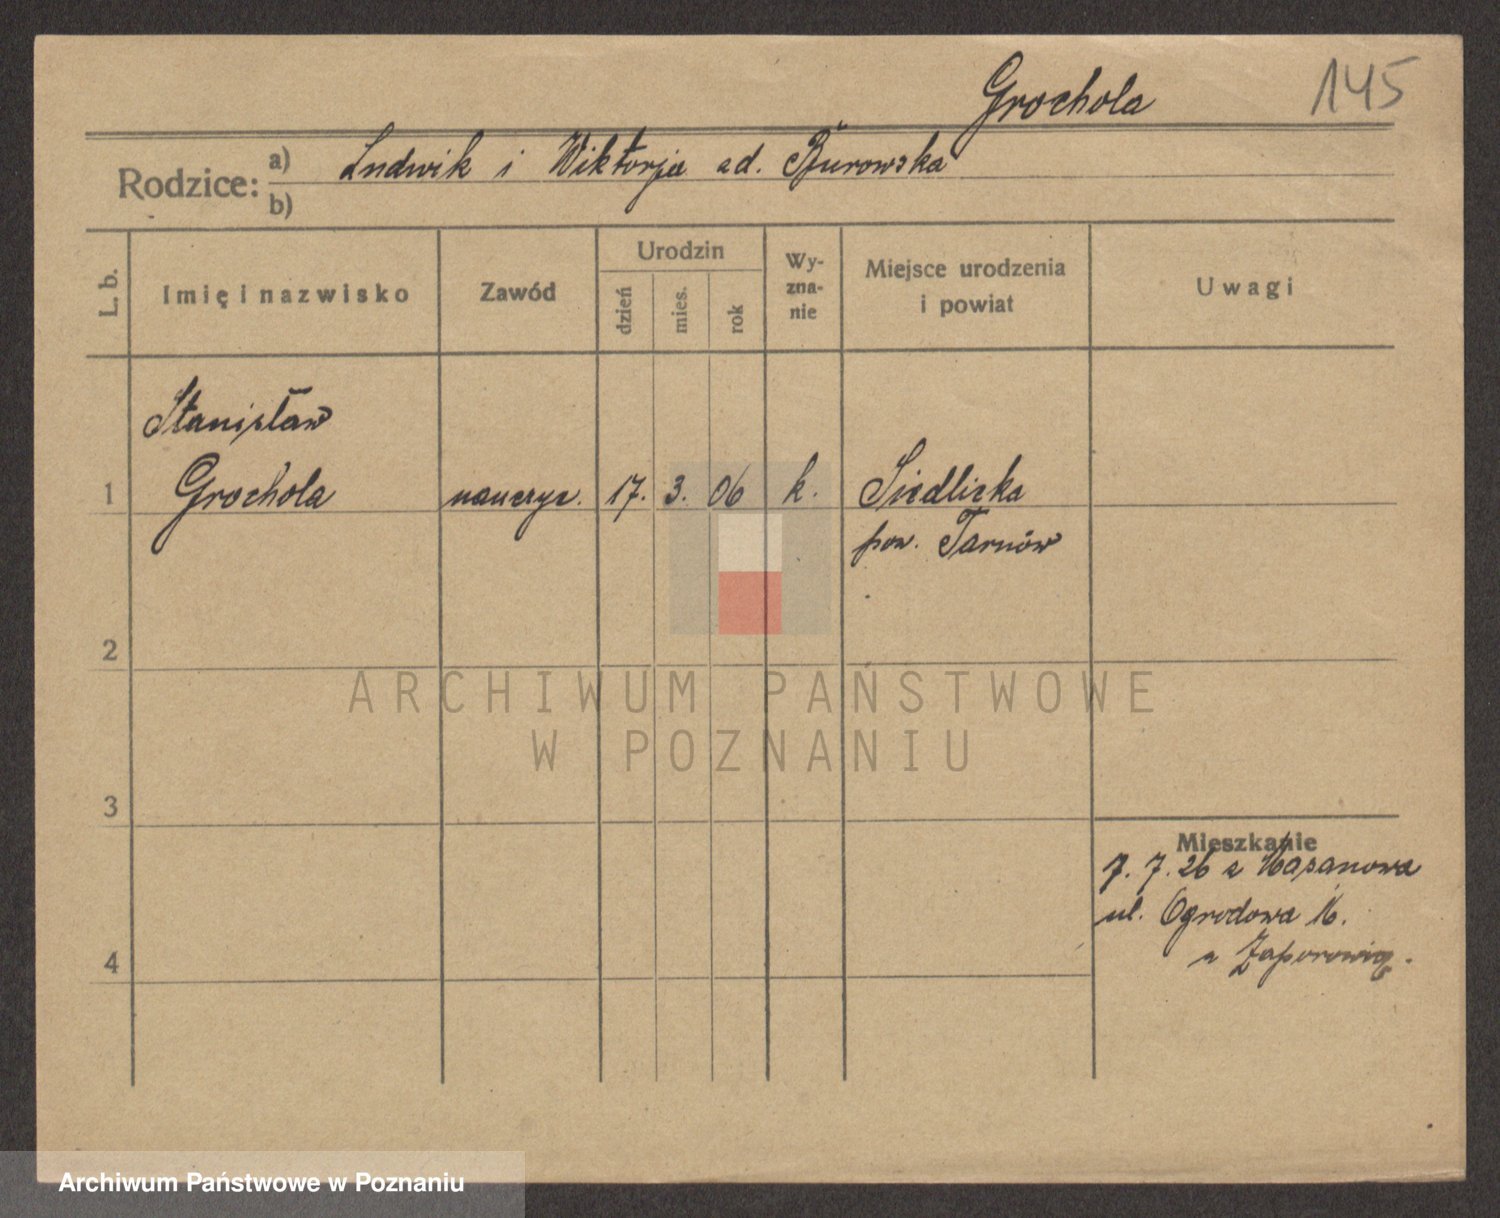 Grochola
145
Rodzice:
a) Ludwik i Wiktorja ad. Burowska
b)
L. b.
Imię i nazwisko
Zawód
Urodzin
dzień
mies.
rok
Wy-
zna-
nie
Miejsce urodzenia
i powiat
Uwagi
Stanisław
1 Grochola nauczyc. 17. 3. 06 k. Siedliska
pow. Tarnów
2
3
4
Mieszkanie
7. 7. 26 z
ul. Ogrodowa 16.
ARCHIWUM PAŃSTWOWE
W POZNANIU
Archiwum Państwowe w Poznaniu